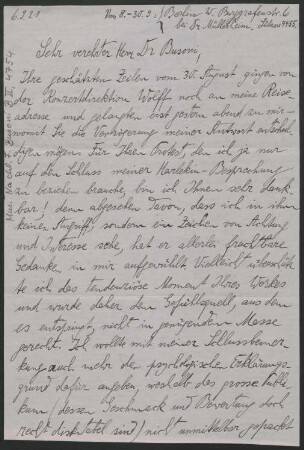 6.9.21
Vom 8.-30.9.: Berlin W. Burggrafenstr. 6
Sehr verehrter Herr Dr Busoni,
Ihre geschätzten Zeilen vom 30. August gingen von
der Konzertdirektion Wolff noch an meine Reise-
adresse und gelangten bist gestern abend zu mir-
womit Sie die Verzögerung meiner Antwort entschul-
digen mögen. Für Ihren Protest, den ich ja nur
auf den Schluss meiner Harlekin-Besprechung
zu beziehen brauche, bin ich Ihnen sehr dank-
bar; denn abgesehen davon, dass ich in ihm
keinen Angriff, sondern ein Zeichen von Achtung
und Interesse sehe, hat er allerlei fruchtbare
Gedanken in mir aufgewühlt. Vielleicht überschätz-
te ich das tendentiöse Moment Ihres Werkes
und wurde daher dem Gefühlsquell, aus dem
es entspringt, nicht in genügendem Masse
gerecht. Ich wollte mit meiner Schlussbemer-
kung auch mehr den psychologischen Erklärungs-
grund dafür angeben, weshalb das grosse Publi-
kum (dessen Geschmack und Bewertung doch
recht diskutabel sind) nicht unmittelbar gepackt
Mus. Nachl. F. Busoni B II, 4754